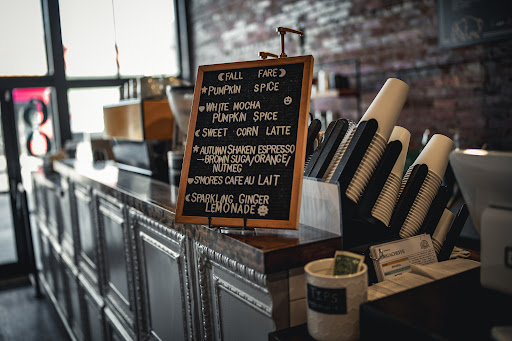 FALL FARE
PUMPKIN SPICE
WHITE MOCHA
PUMPKIN SPICE
SWEET CORN LATTE
AUTUMN SHAKEN ESPRESSO
→BROWN SUGA/ORANGE/
NUTMEG
S'MORES CAFE AU LAIT
SPARKLING GINGER
LEMONADE
TIPS